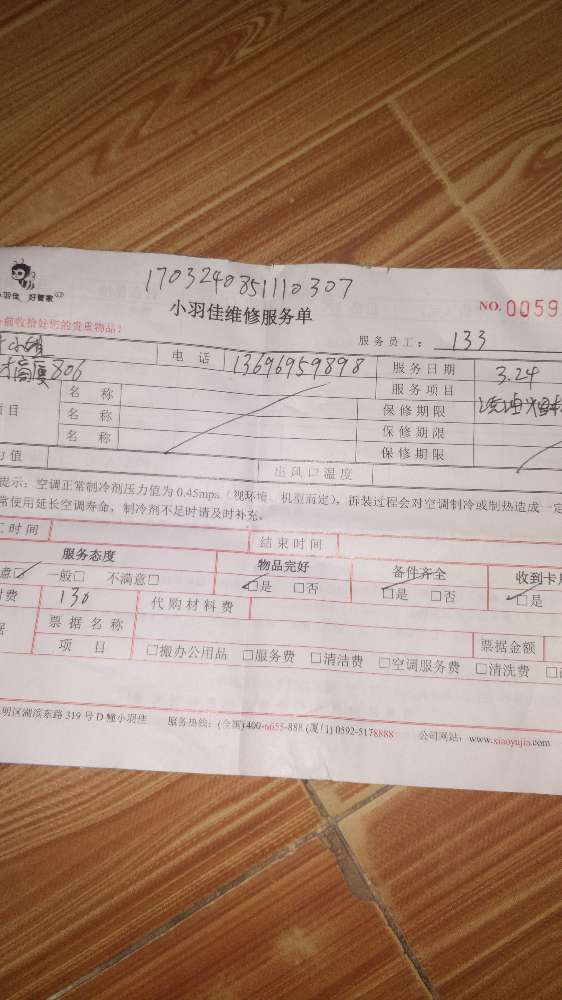 17032408511110307
小羽佳 好管家
小羽佳维修服务单
NO. 0059
前收拾好您的贵重物品!
服务员工: 133
小姐 电话 13696959898 服务日期 3.24
大高厦806 服务项目
名称 保修期限
项目 名称 保修期限
名称 保修期限
力值 出风口温度
提示:空调正常制冷剂压力值为0.45mps(视环境、机型而定),拆装过程会对空调制冷或制热造成一定
常使用延长空调寿命,制冷剂不足时请及时补充。
工时间 结束时间
服务态度 物品完好 备件齐全 收到卡
意☑ 一般□ 不满意□ ☑是 □否 ☑是 □否 ☑是
费 130 代购材料费
据 票据名称 票据金额
项目 □搬办公用品 □服务费 □清洁费 □空调服务费 □清洗费 □
明区湖滨东路319号D幢小羽佳 服务热线:(全国)400-6655-888 (厦门)0592-5178888 公司网站:www.xiaoyujia.com